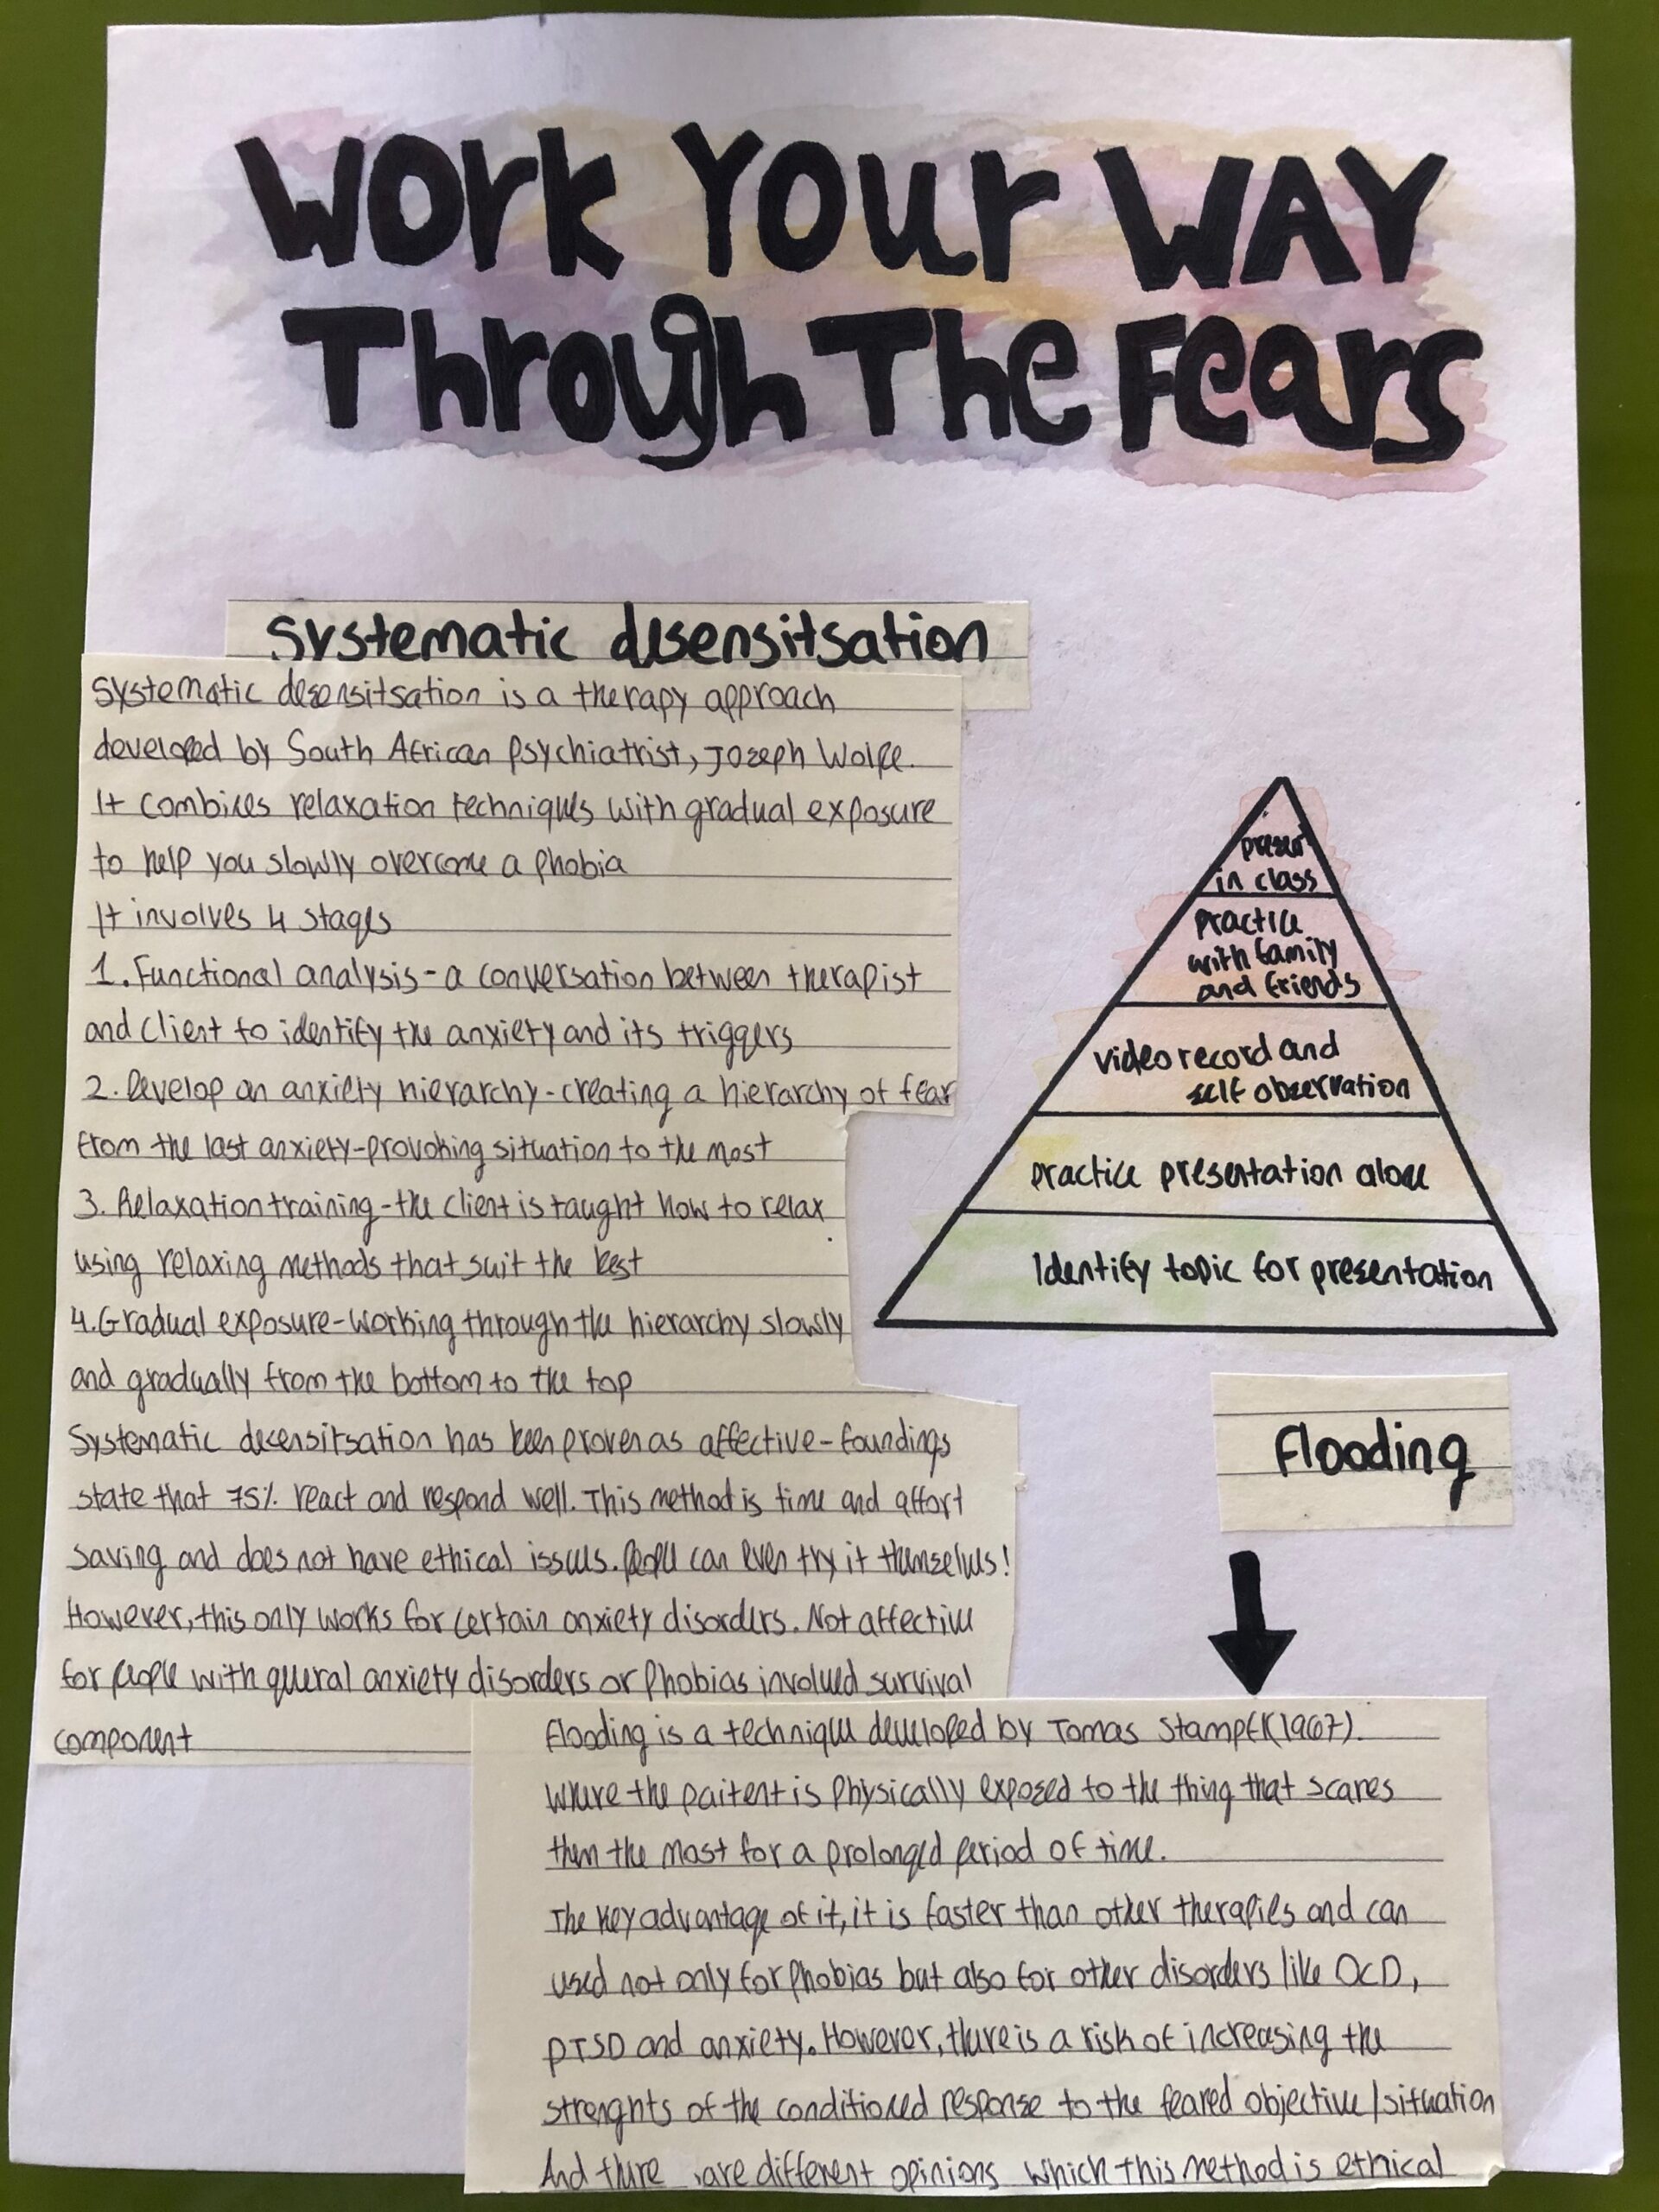 Work Your WAY
Through The Fears
Systematic desensitsation
Systematic desensitsation is a therapy approach
developed by South African Psychiatrist, Joseph Wolpe.
It combines relaxation techniques with gradual exposure
to help you slowly overcome a phobia
It involves 4 stages
1. Functional analysis - a conversation between therapist
and client to identify the anxiety and its triggers
2. Develop an anxiety hierarchy - creating a hierarchy of fear
from the last anxiety-provoking situation to the most
3. Relaxation training - the client is taught how to relax
using relaxing methods that suit the best
4. Gradual exposure - working through the hierarchy slowly
and gradually from the bottom to the top
Systematic desensitsation has been proven as affective - foundings
state that 75% react and respond well. This method is time and affort
saving and does not have ethical issues. People can even try it themselves!
However, this only works for certain anxiety disorders. Not affective
for people with general anxiety disorders or phobias involved survival
component
present
in class
practice
with family
and friends
video record and
self observation
practice presentation alone
Identify topic for presentation
Flooding
Flooding is a technique developed by Tomas Stampfl (1967).
Where the paitent is physically exposed to the thing that scares
then the most for a prolonged period of time.
The key advantage of it, it is faster than other therapies and can
used not only for phobias but also for other disorders like OCD,
PTSD and anxiety. However, there is a risk of increasing the
strenghts of the conditioned response to the feared objective/situation
And there are different opinions which this method is ethical